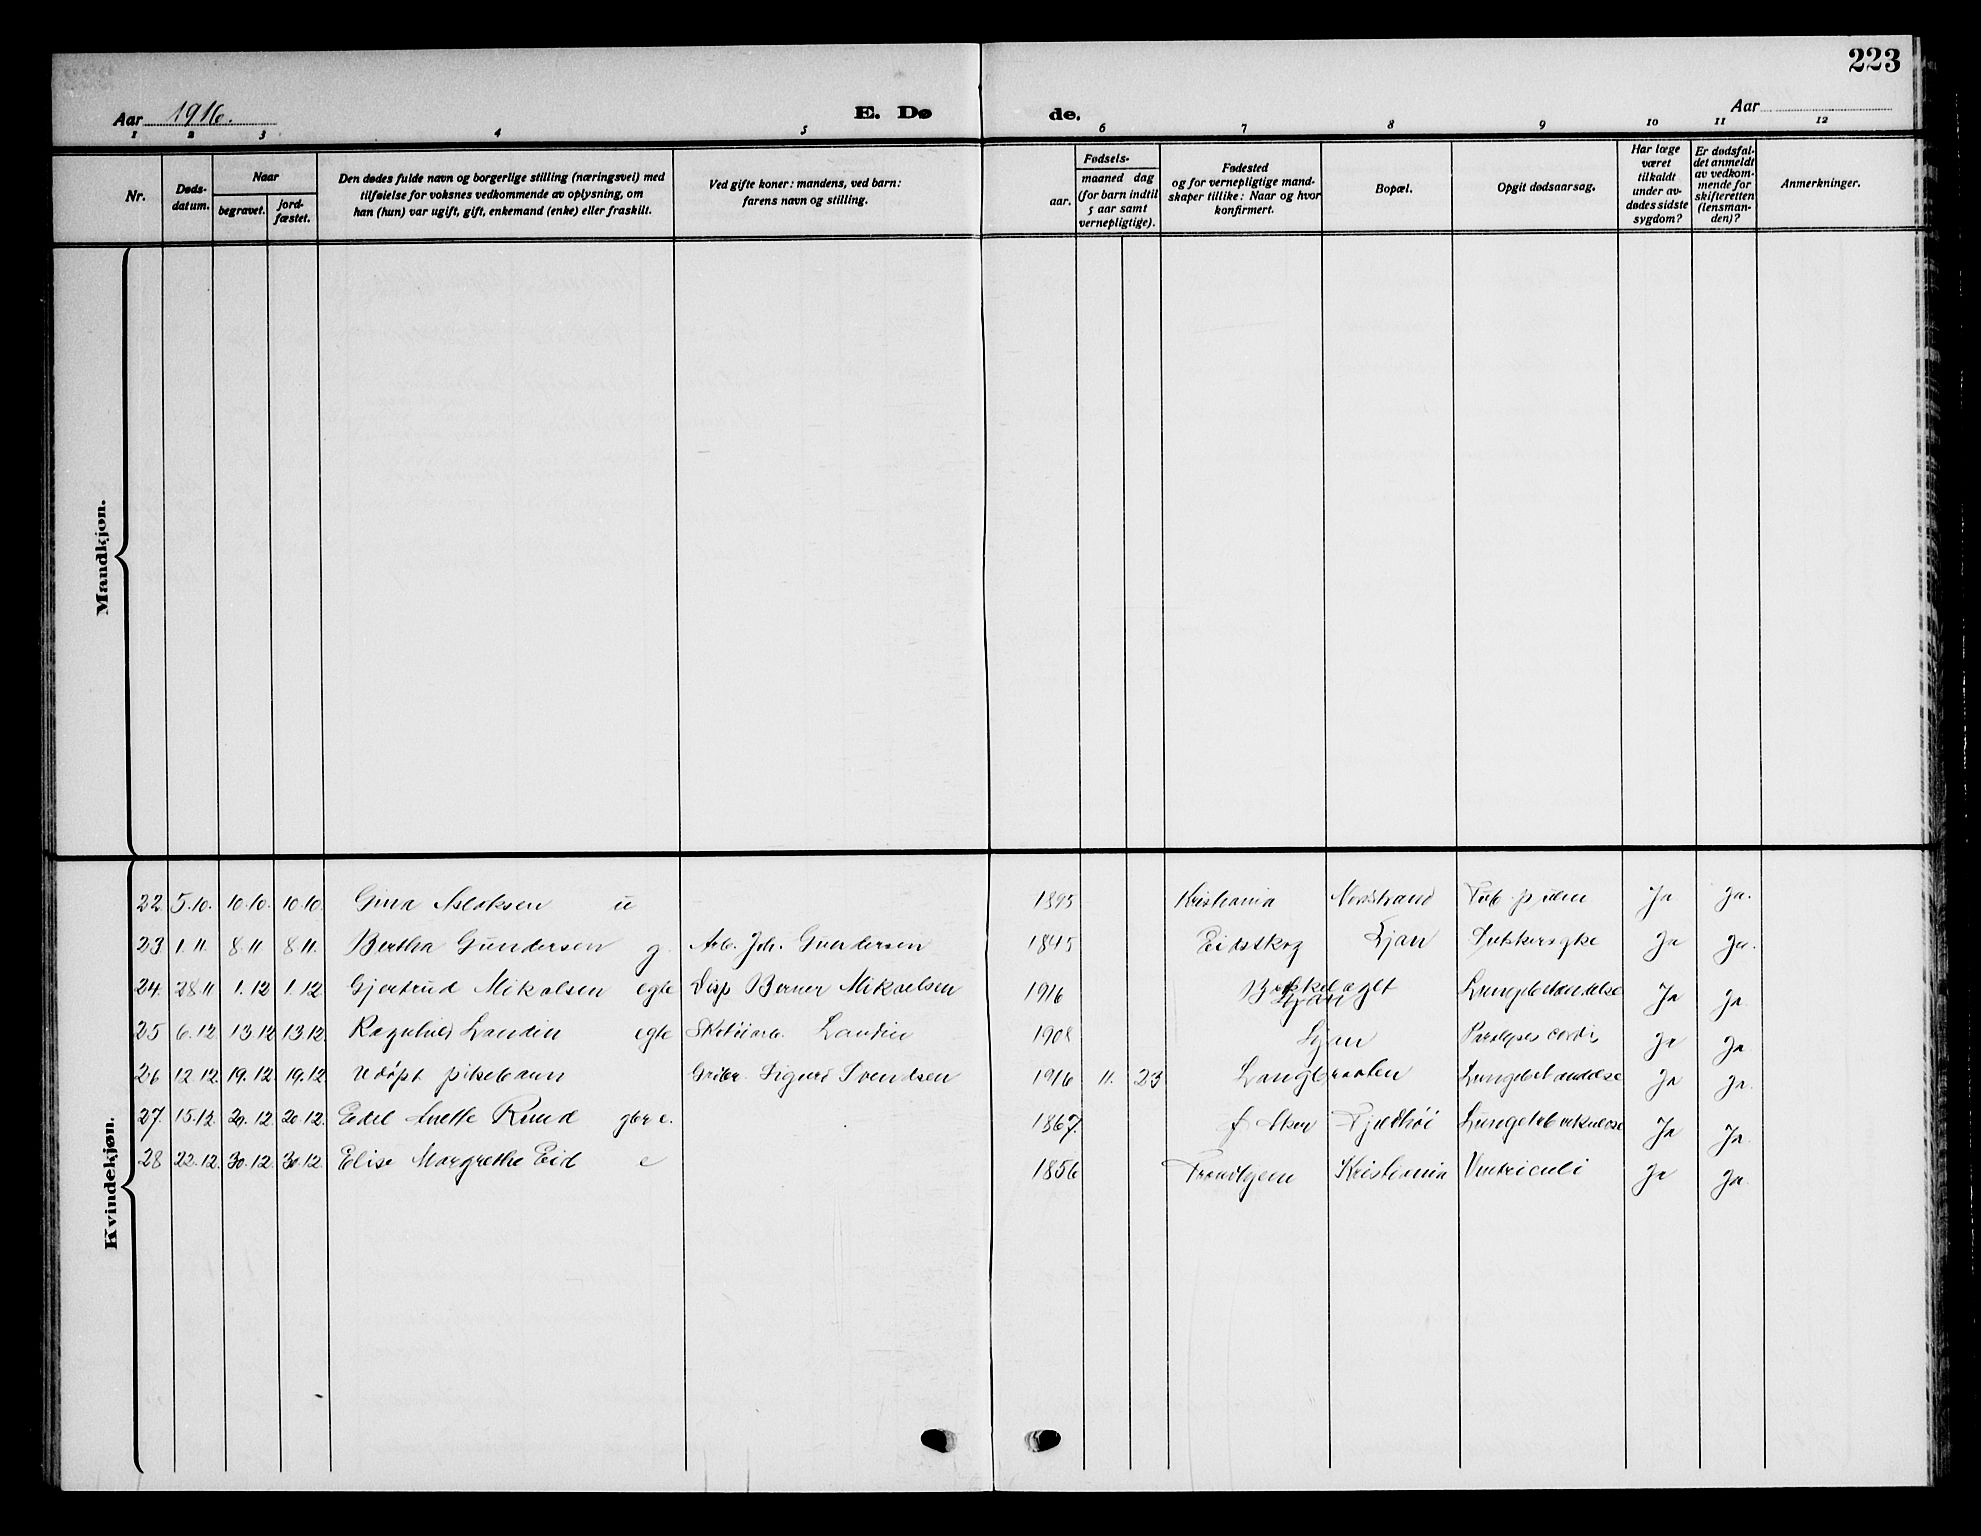 223
Aar 1916.
E. Dø
de.
Aar
1 2 3 4 5 6 7 8 9 10 11 12
Nr.
Døds-
datum.
Naar
begravet.
jord-
fæstet.
Den dødes fulde navn og borgerlige stilling (næringsvei) med
tilføielse for voksnes vedkommende av oplysning, om
han (hun) var ugift, gift, enkemand (enke) eller fraskilt.
Ved gifte koner: mandens, ved barn:
farens navn og stilling.
Fødsels-
aar.
maaned dag
(for barn indtil
5 aar samt
vernepligtige).
Fødested
og for vernepligtige mand-
skaper tillike: Naar og hvor
konfirmert.
Bopæl.
Opgit dødsaarsag.
Har læge
været
tilkaldt
under av-
dødes sidste
sygdom?
Er dødsfal-
det anmeldt
av vedkom-
mende for
skifteretten
(lensman-
den)?
Anmerkninger.
Mandkjøn.
Kvindekjøn.
22 5.10. 10.10. 10.10. Gina Aslaksen u 1895 Kristiania Nordstrand Ja Ja.
23 1.11. 8.11 8.11. Bertha Gundersen g. Arb. Joh. Gundersen 1845 Eidskog Ljan Sukkersyke Ja Ja.
24. 28.11 1.12 1.12 Gjertrud Mikalsen egte Disp Berner Mikaelsen 1916 Bekkelaget Ljan Lungebetændelse Ja Ja.
25 6.12. 13.12 13.12. Ragnhild Landin egte Landin 1908 Ljan Paralyses cordis Ja Ja
26 12.12 19.12. 19.12 Udøpt pikebarn Sigurd Svendsen 1916 11. 23 Langbraaten Lungebetændelse Ja Ja.
27. 15.12. 20.12 20.12. Edel Anette Ruud e. 1867. Asker Lungetuberkulose Ja Ja.
28 22.12. 30.12. 30.12. Elise Margrethe Eid e 1856 Trondhjem Kristiania Ventriculi Ja Ja.